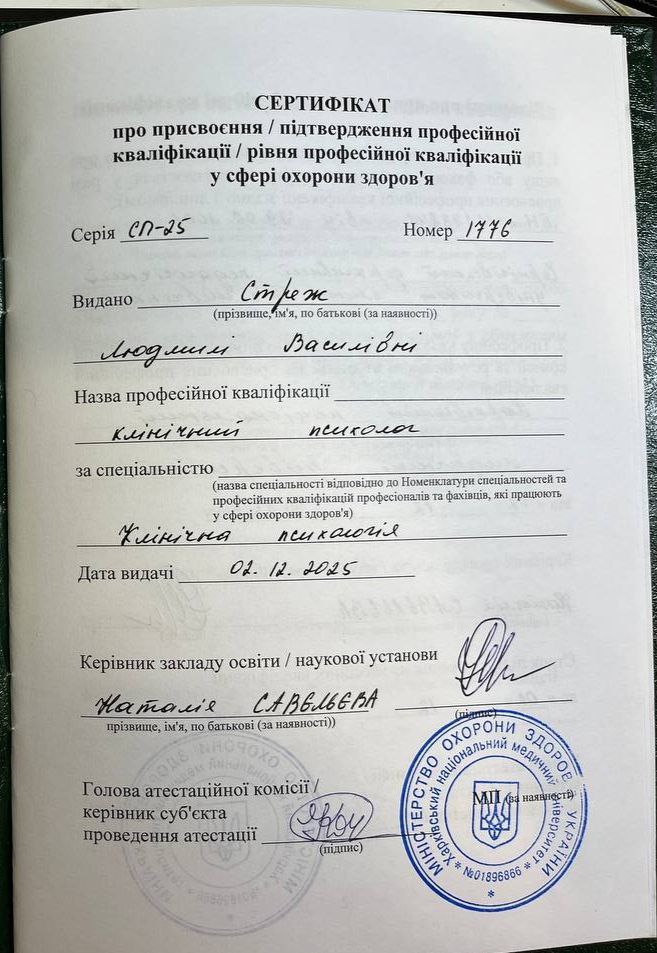 СЕРТИФІКАТ
про присвоєння / підтвердження професійної
кваліфікації / рівня професійної кваліфікації
у сфері охорони здоров'я
Серія СП-25 Номер 1776
Видано Стреж
(прізвище, ім'я, по батькові (за наявності))
Людмилі Василівні
Назва професійної кваліфікації
клінічний психолог
за спеціальністю
(назва спеціальності відповідно до Номенклатури спеціальностей та
професійних кваліфікацій професіоналів та фахівців, які працюють
у сфері охорони здоров'я)
Клінічна психологія
Дата видачі 02.12.2025
Керівник закладу освіти / наукової установи
Наталія САВЕЛЬЄВА
(підпис)
прізвище, ім'я, по батькові (за наявності))
Голова атестаційної комісії /
керівник суб'єкта
проведення атестації
(підпис)
МП (за наявності)
МІНІСТЕРСТВО ОХОРОНИ ЗДОРОВ'Я УКРАЇНИ
Харківський національний медичний університет
№01896866